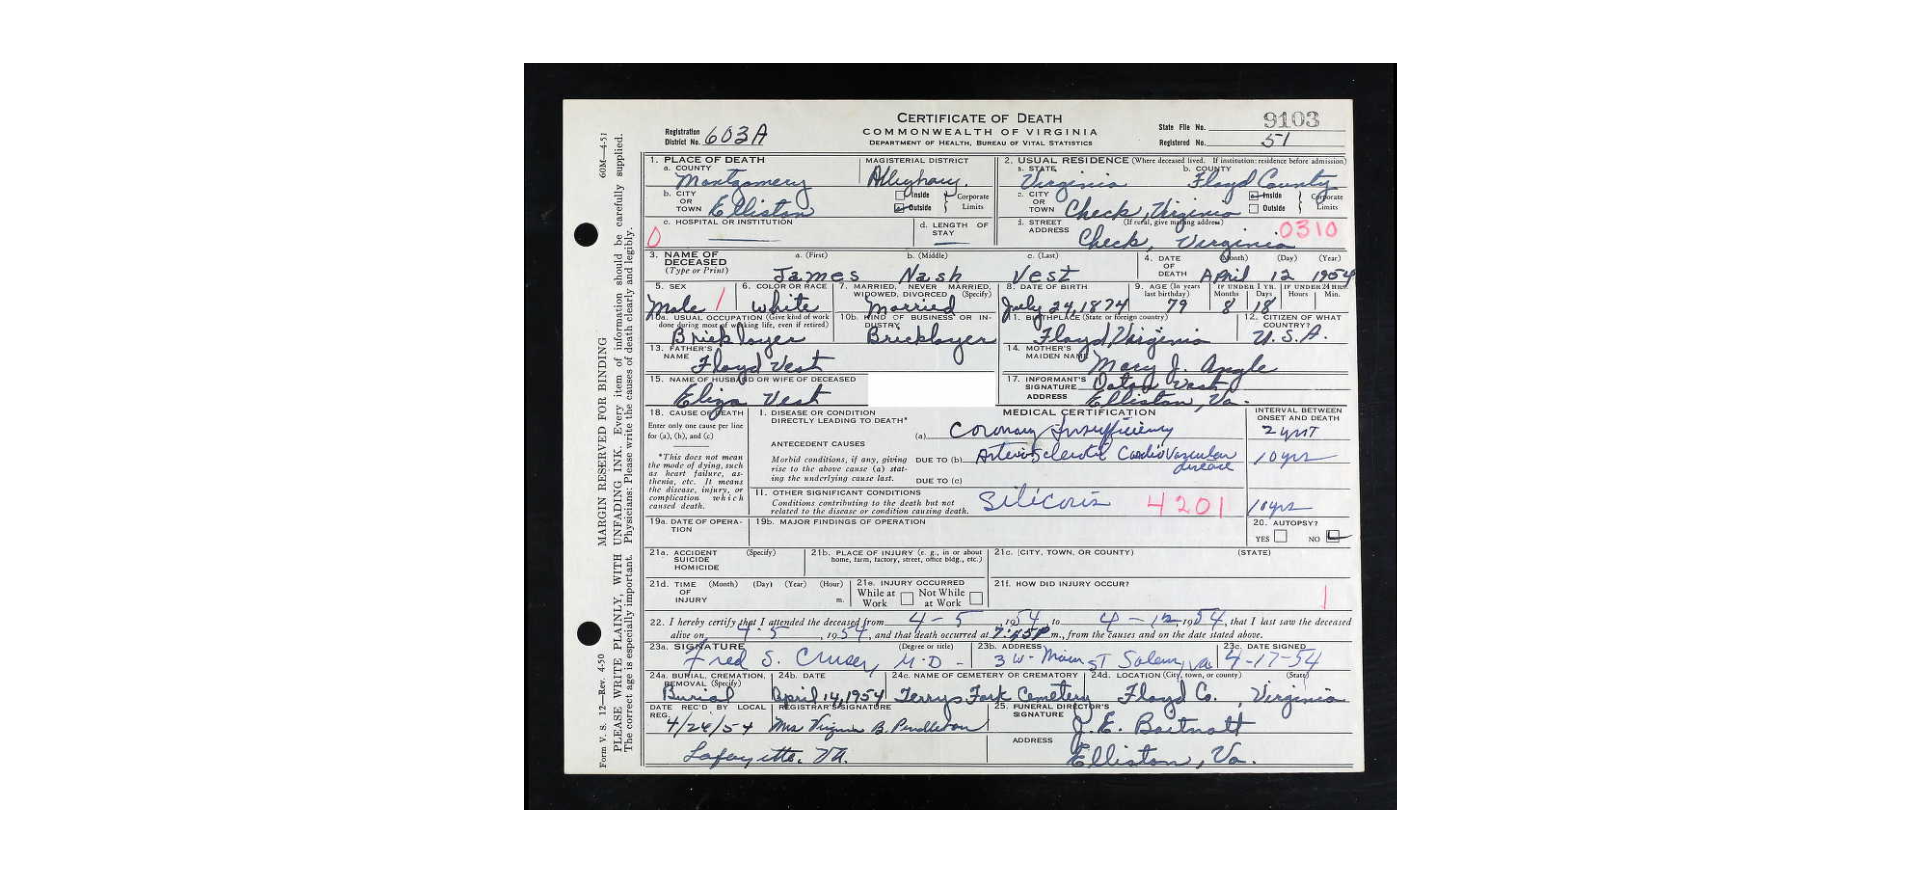 CERTIFICATE OF DEATH
COMMONWEALTH OF VIRGINIA
DEPARTMENT OF HEALTH, BUREAU OF VITAL STATISTICS
Registration District No. 603A
State File No. 9103
Registered No. 51
1. PLACE OF DEATH
a. COUNTY
Montgomery
MAGISTERIAL DISTRICT
Alleghany.
b. CITY OR TOWN Elliston
Inside
Outside
Corporate Limits
c. HOSPITAL OR INSTITUTION
0
d. LENGTH OF STAY
2. USUAL RESIDENCE (Where deceased lived. If institution: residence before admission)
a. STATE
Virginia
b. COUNTY
Floyd County
c. CITY OR TOWN Check, Virginia
Inside
Outside
Corporate Limits
STREET ADDRESS (If rural, give mailing address)
Check, Virginia
0310
3. NAME OF DECEASED (Type or Print)
a. (First) b. (Middle) c. (Last)
James Nash Vest
4. DATE OF DEATH (Month) (Day) (Year)
April 12 1954
5. SEX
Male 1
6. COLOR OR RACE
White
7. MARRIED, NEVER MARRIED, WIDOWED, DIVORCED (Specify)
Married
8. DATE OF BIRTH
July 24, 1874
9. AGE (In years last birthday)
79
IF UNDER 1 YR. Months Days
8 18
IF UNDER 24 HRS. Hours Min.
10a. USUAL OCCUPATION (Give kind of work done during most of working life, even if retired)
Bricklayer
10b. KIND OF BUSINESS OR INDUSTRY
Bricklayer
11. BIRTHPLACE (State or foreign country)
Floyd, Virginia
12. CITIZEN OF WHAT COUNTRY?
U.S.A.
13. FATHER'S NAME
Floyd Vest
14. MOTHER'S MAIDEN NAME
Mary J. Angle
15. NAME OF HUSBAND OR WIFE OF DECEASED
Eliza Vest
17. INFORMANT'S SIGNATURE Vest
ADDRESS Elliston, Va.
18. CAUSE OF DEATH
Enter only one cause per line for (a), (b), and (c)
*This does not mean the mode of dying, such as heart failure, asthenia, etc. It means the disease, injury, or complication which caused death.
MEDICAL CERTIFICATION
INTERVAL BETWEEN ONSET AND DEATH
I. DISEASE OR CONDITION DIRECTLY LEADING TO DEATH*
(a) Coronary Insufficiency
ANTECEDENT CAUSES
Morbid conditions, if any, giving rise to the above cause (a) stating the underlying cause last.
DUE TO (b) Arteriosclerotic Cardiovascular disease 10 yrs
DUE TO (c)
II. OTHER SIGNIFICANT CONDITIONS
Conditions contributing to the death but not related to the disease or condition causing death.
Silicosis 4201 10 yrs
19a. DATE OF OPERATION
19b. MAJOR FINDINGS OF OPERATION
20. AUTOPSY?
YES NO
21a. ACCIDENT SUICIDE HOMICIDE (Specify)
21b. PLACE OF INJURY (e. g., in or about home, farm, factory, street, office bldg., etc.)
21c. (CITY, TOWN, OR COUNTY) (STATE)
21d. TIME OF INJURY (Month) (Day) (Year) (Hour) m.
21e. INJURY OCCURRED
While at Work Not While at Work
21f. HOW DID INJURY OCCUR?
1
22. I hereby certify that I attended the deceased from 4-5, 1954 to 4-12, 1954, that I last saw the deceased
alive on 4-5, 1954, and that death occurred at 7:45P m., from the causes and on the date stated above.
23a. SIGNATURE (Degree or title)
Fred S. M.D.
23b. ADDRESS
3 W. Main St Salem, Va
23c. DATE SIGNED
4-17-54
24a. BURIAL, CREMATION, REMOVAL (Specify)
Burial
24b. DATE
April 14, 1954
24c. NAME OF CEMETERY OR CREMATORY
Terrys Fork Cemetery
24d. LOCATION (City, town, or county) (State)
Floyd Co. Virginia
DATE REC'D BY LOCAL REG.
4/26/54
REGISTRAR'S SIGNATURE
Mrs Virginia B. Pendleton
Lafayette, Va.
25. FUNERAL DIRECTOR'S SIGNATURE
J. E. Boitnott
ADDRESS
Elliston, Va.
Form V. S. 12—Rev. 4-50 60M—4-51
MARGIN RESERVED FOR BINDING
PLEASE WRITE PLAINLY, WITH UNFADING INK. Every item of information should be carefully supplied.
The correct age is especially important. Physicians: Please write the causes of death clearly and legibly.